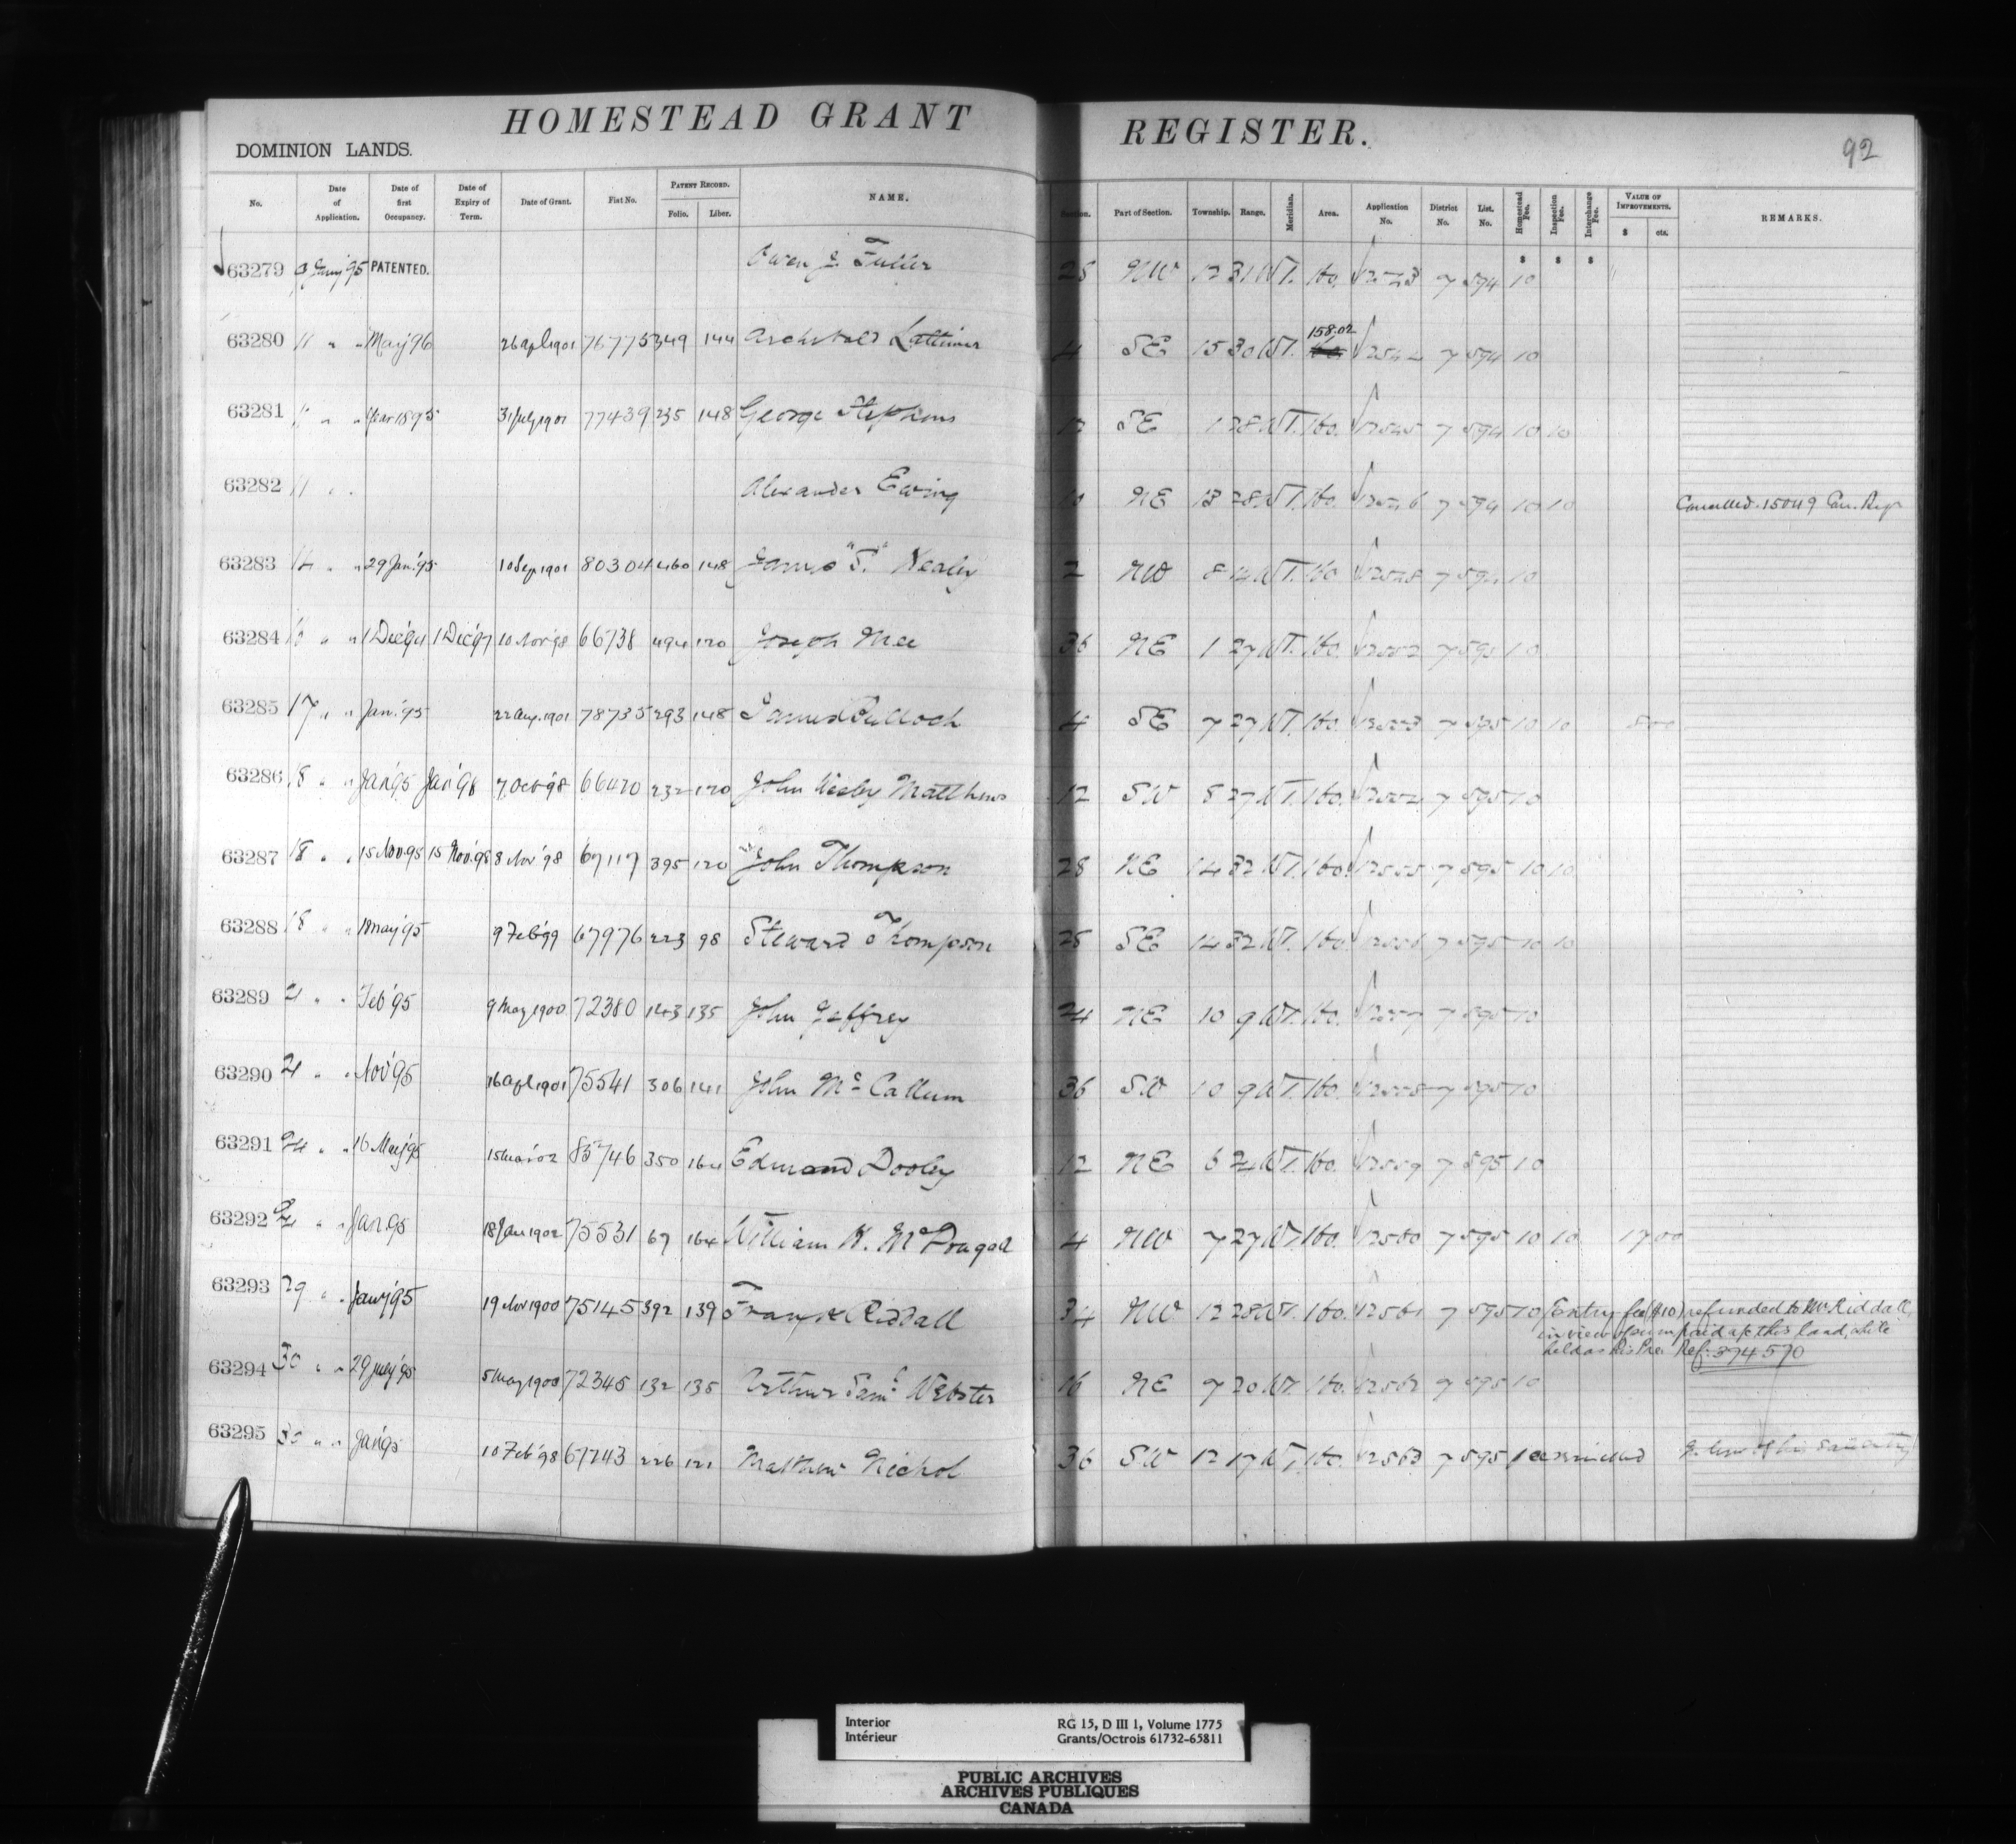 HOMESTEAD GRANT REGISTER.
92
DOMINION LANDS.
No. Date of Application. Date of first Occupancy. Date of Expiry of Term. Date of Grant. Fiat No. PATENT RECORD. Folio. Liber. NAME. Section. Part of Section. Township. Range. Meridian. Area. Application No. District No. List. No. Homestead Fee. Inspection Fee. Interchange Fee. VALUE OF IMPROVEMENTS. $ cts. REMARKS.
$ $ $
63279 '95 PATENTED. Owen J. Fuller 25 NW 12 31 W1. 160. 7 594 10
158.02
63280 11 " " May '96 26 Apl 1901 76775 349 144 Archibald Lattimer 4 SE 15 30 W1. 7 594 10
63281 11 " " Mar 1895 31 July 1901 77439 235 148 George Stephens 12 SE 1 28 W1. 160. 12545 7 594 10 10
63282 11 " " Alexander Ewing 10 NE 13 28 W1. 160. 12546 7 594 10 10 Cancelled. 15049 Can. Reg
63283 14 " " 29 Jan. '95 10 Sep. 1901 80304 460 148 James "S." Nealy 2 NW 8 14 W1. 160. 12548 7 594 10
63284 " " 1 Dec '94 1 Dec '97 10 Nov '98 66738 494 120 Joseph Mee 36 NE 1 27 W1. 160. 12552 7 595 10
63285 17 " " Jan. '95 22 Aug. 1901 78735 293 148 James Bulloch 4 SE 7 27 W1. 160. 12553 7 595 10 10
63286 18 " " Jan '95 Jan '98 7 Oct '98 66420 232 120 John Wesley Matthews 12 SW 8 27 W1. 160. 12554 7 595 10
63287 18 " " 15 Nov. 95 15 Nov. '98 8 Nov '98 67117 395 120 John Thompson 28 NE 14 32 W1. 160. 12555 7 595 10 10
63288 18 " " 18 May '95 9 Feb '99 67976 223 98 Steward Thompson SE 14 32 W1. 160. 12556 7 595 10 10
63289 21 " " Feb '95 9 May 1900 72380 143 135 John Jeffrey 24 NE 10 9 W1. 160. 12557 7 595 10
63290 21 " " Nov '95 16 Apl 1901 75541 306 141 John McCallum 36 SW 10 9 W1. 160. 12558 7 595 10
63291 24 " " 16 May '95 15 Mar '02 85746 350 164 Edmund Dooley 12 NE 6 W1. 160. 12559 7 595 10
63292 " " Jan. 95 18 Jan 1902 75531 67 164 William K. McDougall 4 NW 7 27 W1. 160. 12560 7 595 10 10 17 00
63293 29 " " Jany '95 19 Nov 1900 75145 392 139 Frank Riddall 34 NW 12 28 W1. 160. 12561 7 595 10 Entry fee ($10) refunded to Mr Riddall,
in view of sum paid a/c this land, while
held as his Pre. Ref. 374570
63294 30 " " 29 '95 5 May 1900 72345 132 135 Arthur Saml Webster 16 NE 7 20 W1. 160. 12562 7 595 10
63295 30 " " Jan '95 10 Feb '98 67243 226 121 Matthew Nichol 36 SW 12 17 W1. 160. 12563 7 595 10
Interior RG 15, D III 1, Volume 1775
Intérieur Grants/Octrois 61732-65811
PUBLIC ARCHIVES
ARCHIVES PUBLIQUES
CANADA